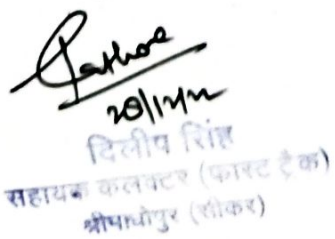 Rathore
28/12/22
दिलीप सिंह
सहायक कलक्टर (फास्ट ट्रैक)
श्रीमाधोपुर (सीकर)